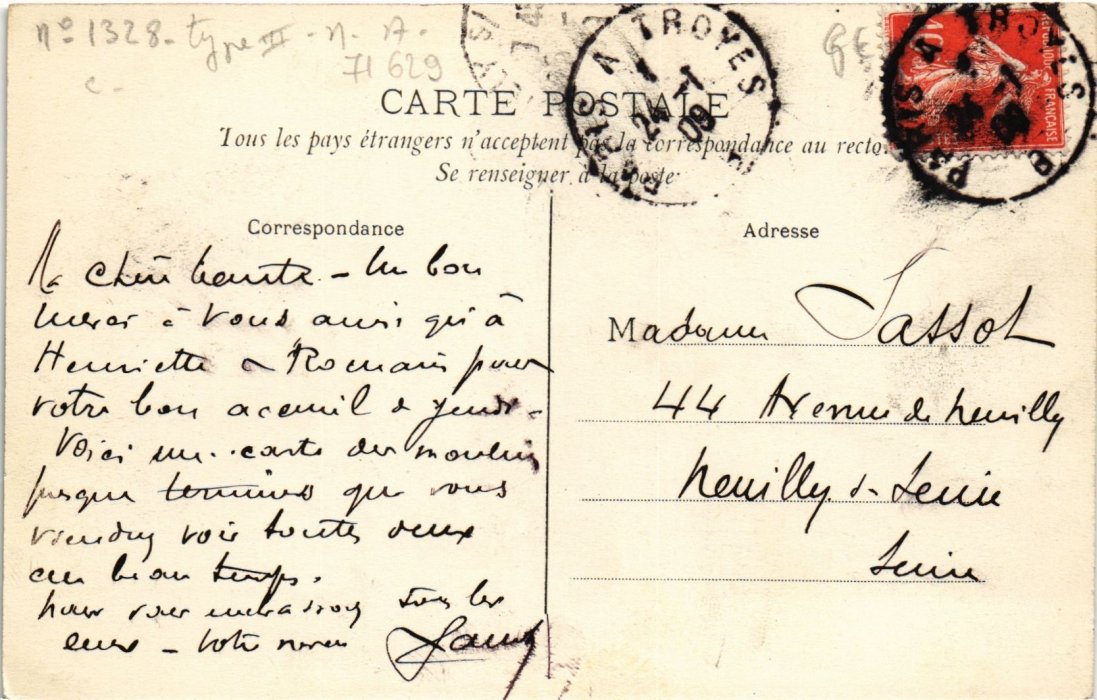 n° 1328 - type III - n. A.
71629
c -
CARTE POSTALE
Tous les pays étrangers n'acceptent pas la correspondance au recto.
Se renseigner à la poste
PARIS A TROYES
24 -7
09
PARIS A TROYES
10
FRANÇAISE
Correspondance
Adresse
Ma chère tante - Un bon
merci à vous ainsi qu'à
Henriette & Romain pour
votre bon acceuil de jeudi -
Voici une carte des moulins
presque terminés que vous
viendrez voir toutes deux
au beau temps.
Nous vous embrassons tous les
deux - Votre neveu
Madame Sassot
44 Avenue de Neuilly
Neuilly s- Seine
Seine